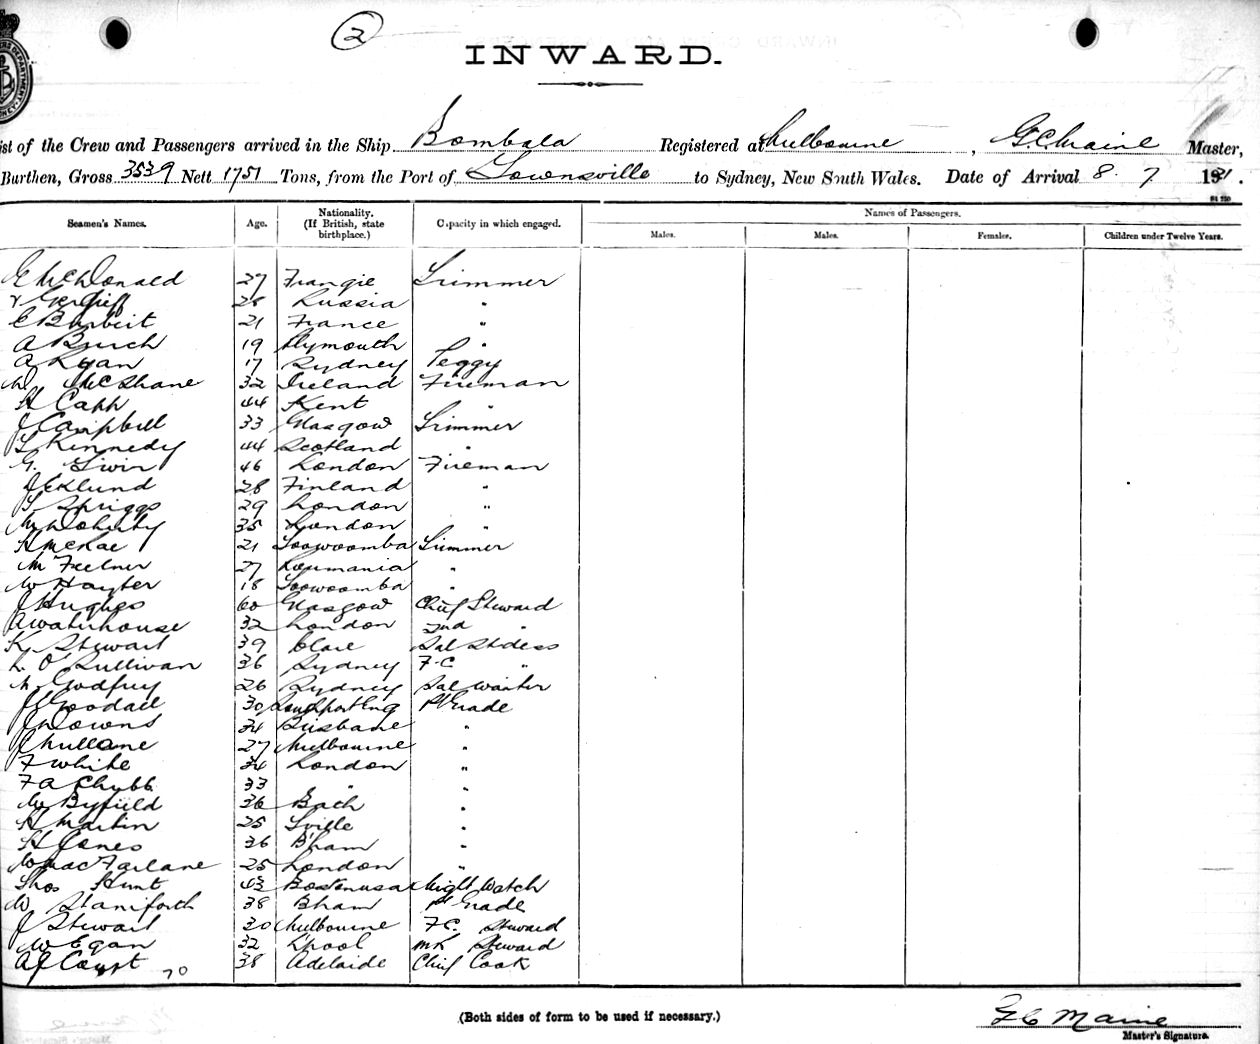 2
INWARD.
ist of the Crew and Passengers arrived in the Ship Bombala Registered at Melbourne, G.C. Maine Master,
Burthen, Gross 3539 Nett 1751 Tons, from the Port of Townsville to Sydney, New South Wales. Date of Arrival 8. 7 1921.
Seamen's Names. Age. Nationality. (If British, state birthplace.) Capacity in which engaged. Names of Passengers.
Males. Males. Females. Children under Twelve Years.
E McDonald 27 Trangie Trimmer
28 Russia "
21 France "
A Burch 19 Plymouth "
A Ryan 17 Sydney Peggy
McShane 32 Ireland Fireman
H Capp 44 Kent "
J Campbell 33 Glasgow Trimmer
T Kennedy 44 Scotland "
G. 46 London Fireman
J Eklund 28 Finland "
T Spriggs 29 London "
M Doherty 35 London "
H McRae 21 Toowoomba Trimmer
M 27 Roumania "
W Hayter 18 Toowoomba "
J Hughes 60 Glasgow Chief Steward
A Waterhouse 32 London 2nd "
K Stewart 39 Clare Sal Stdess
L O'Sullivan 36 Sydney F.C "
M Godfrey 26 Sydney Sal Waiter
J Goodall 30 Southport Eng 1st Grade
J Downs 34 Brisbane "
J Mullane 27 Melbourne "
F White 34 London "
F A Chubb 33 " "
W Byfield 36 Bath "
H Martin 25 Tville "
H Jones 36 B'ham "
W MacFarlane 25 London "
Thos Hunt 43 Boston USA Night Watch
W Staniforth 38 Bham 1st Grade
J Stewart 30 Melbourne F.C. Steward
W Egan 32 Lpool Steward
A J 38 Adelaide Chief Cook
70
(Both sides of form to be used if necessary.)
G C Maine
Master's Signature.